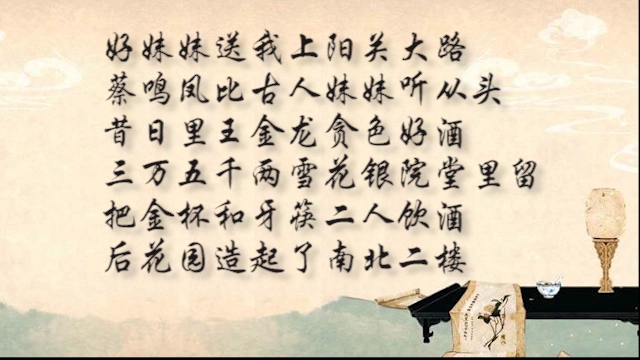 好妹妹送我上阳关大路
蔡鸣凤比古人妹妹听从头
昔日里王金龙贪色好酒
三万五千两雪花银院堂里留
把金杯和牙筷二人饮酒
后花园造起了南北二楼